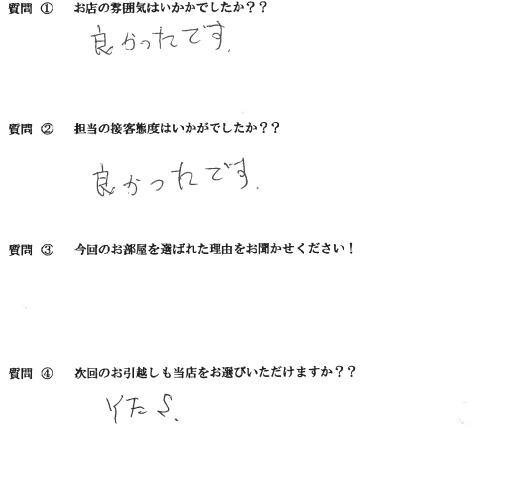 質問 ① お店の雰囲気はいかかでしたか？？
良かったです.
質問 ② 担当の接客態度はいかがでしたか？？
良かったです.
質問 ③ 今回のお部屋を選ばれた理由をお聞かせください！
質問 ④ 次回のお引越しも当店をお選びいただけますか？？